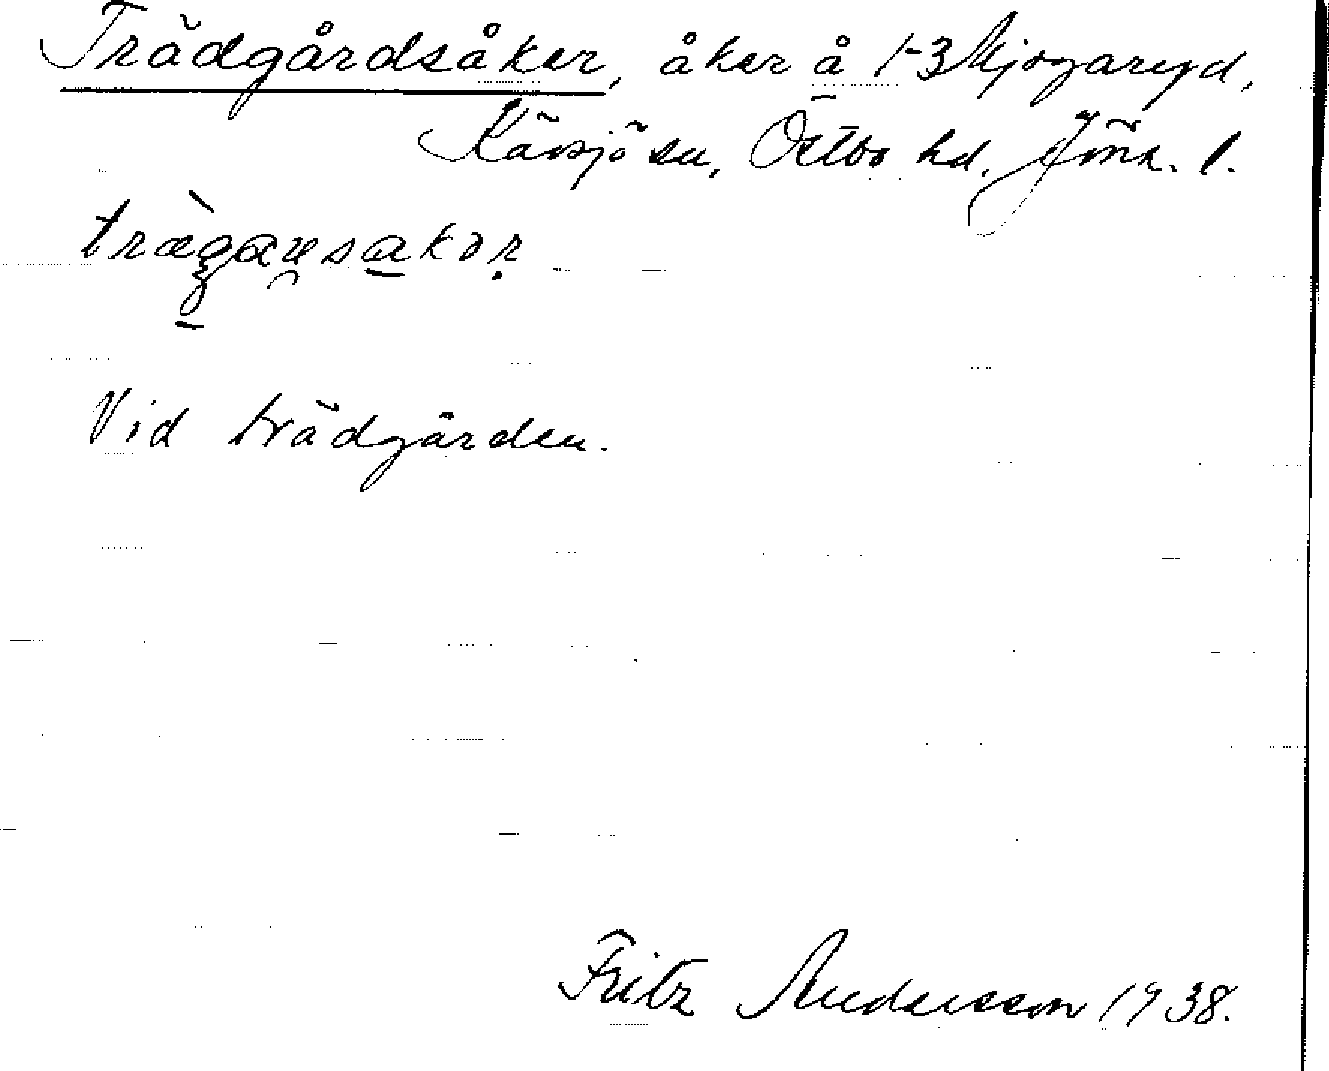 Trädgårdsåker, åker å 1-3 Mjogaryd,
Kävsjö sn, Östbo hd, Jönk. l.
Vid trädgården.
Fritz Andersson 1938.